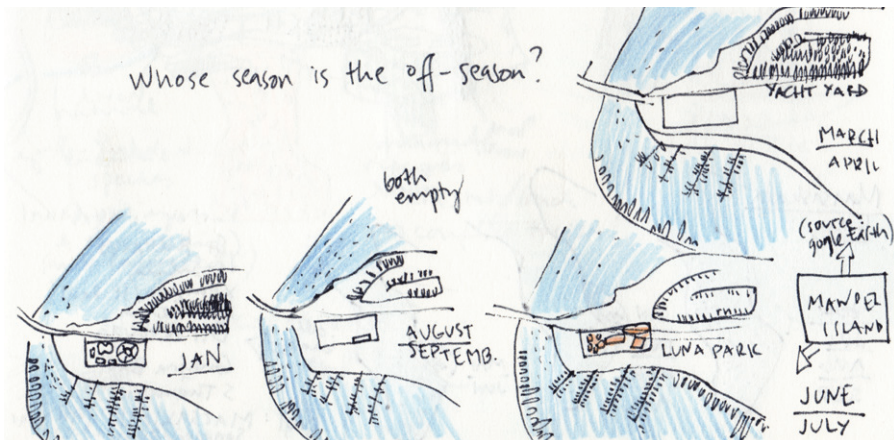 Whose season is the off-season?
YACHT YARD
MARCH
APRIL
both
empty
(source
google Earth)
MANOEL
ISLAND
JAN
AUGUST
SEPTEMB.
LUNA PARK
JUNE
JULY